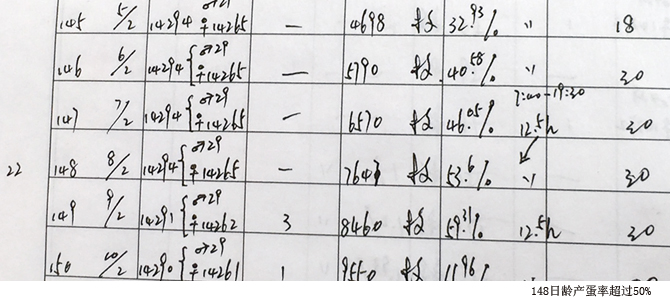 145 5/2 14294 ♂29 ♀14265 — 4698 枚 32.93% 〃 18
146 6/2 14294 { ♂29 ♀14265 — 5790 枚 40.58% 〃 20
7:00-19:30
147 7/2 14294 { ♂29 ♀14265 — 6570 枚 46.05% 12.5h 20
22 148 8/2 14294 { ♂29 ♀14265 — 7647 枚 53.6% 〃 20
149 9/2 14291 { ♂29 ♀14262 3 8460 枚 59.31% 12.5h 20
150 10/2 14290 { ♂29 ♀14261 1 9550 枚
148日龄产蛋率超过50%